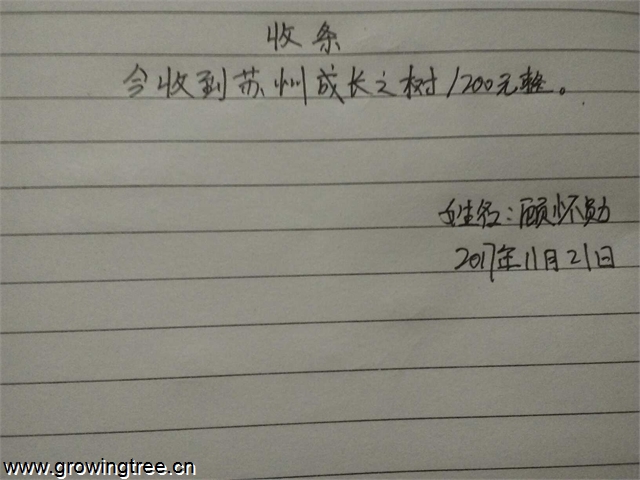 收条
今收到苏州成长之树1200元整。
姓名:顾怀勋
2017年11月21日
www.growingtree.cn